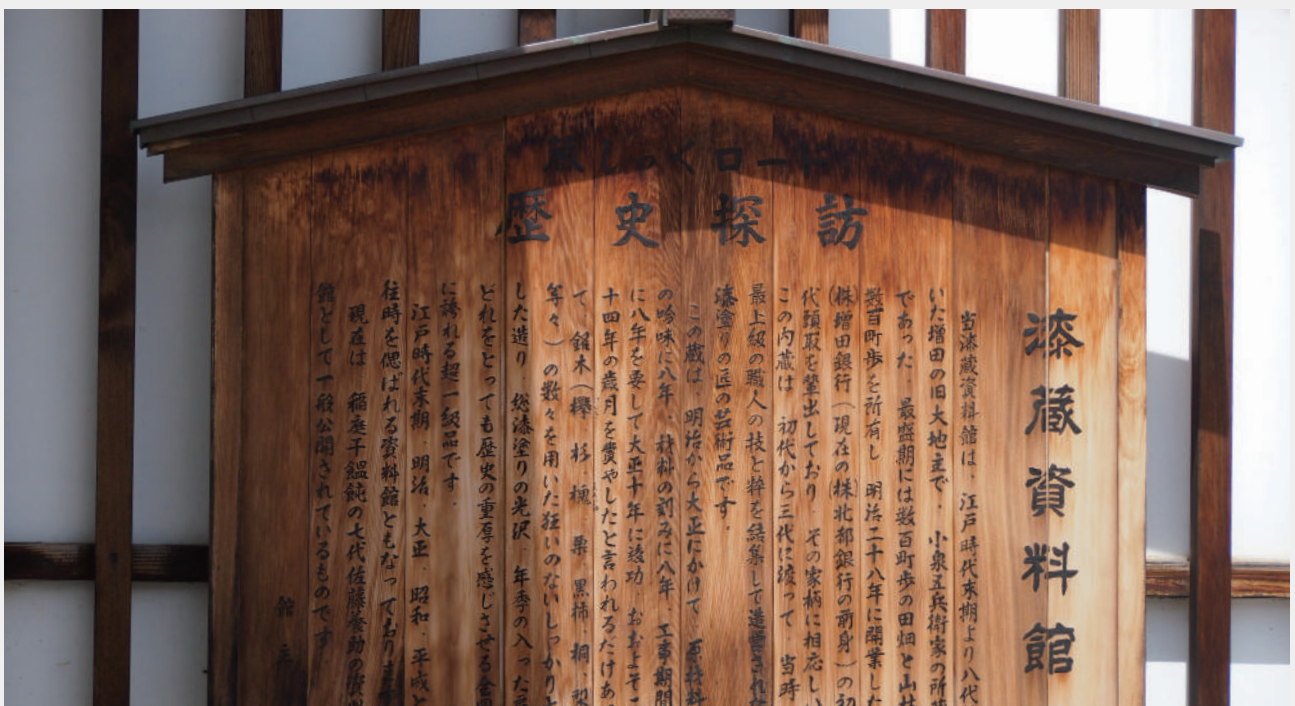 蔵しっくロード
歴史探訪
漆蔵資料館
当漆蔵資料館は、江戸時代末期より八代
いた増田の旧大地主で、小泉五兵衛家の所
であった。最盛期には数百町歩の田畑と山林
数百町歩を所有し、明治二十八年に開業した
(株)増田銀行(現在の(株)北都銀行の前身)の初
代頭取を輩出しており、その家柄に相応しい
この内蔵は、初代から三代に渡って、当時
最上級の職人の技と粋を結集して造営され
漆塗りの匠の芸術品です。
この蔵は、明治から大正にかけて、原材料
の吟味に八年、材料の刻みに八年、工事期間
に八年を要して大正十年に竣功、おおよそ二
十四年の歳月を費やしたと言われるだけあ
て、銘木(欅、杉、槐、栗、黒柿、桐、梨
等々)の数々を用いた狂いのないしっかりと
した造り、総漆塗りの光沢、年季の入った
どれをとっても歴史の重厚を感じさせる全国
に誇れる超一級品です。
江戸時代末期、明治、大正、昭和、平成と
往時を偲ばれる資料館ともなっております
現在は、稲庭干饂飩の七代佐藤養助の資料
館として一般公開されているものです。
館主